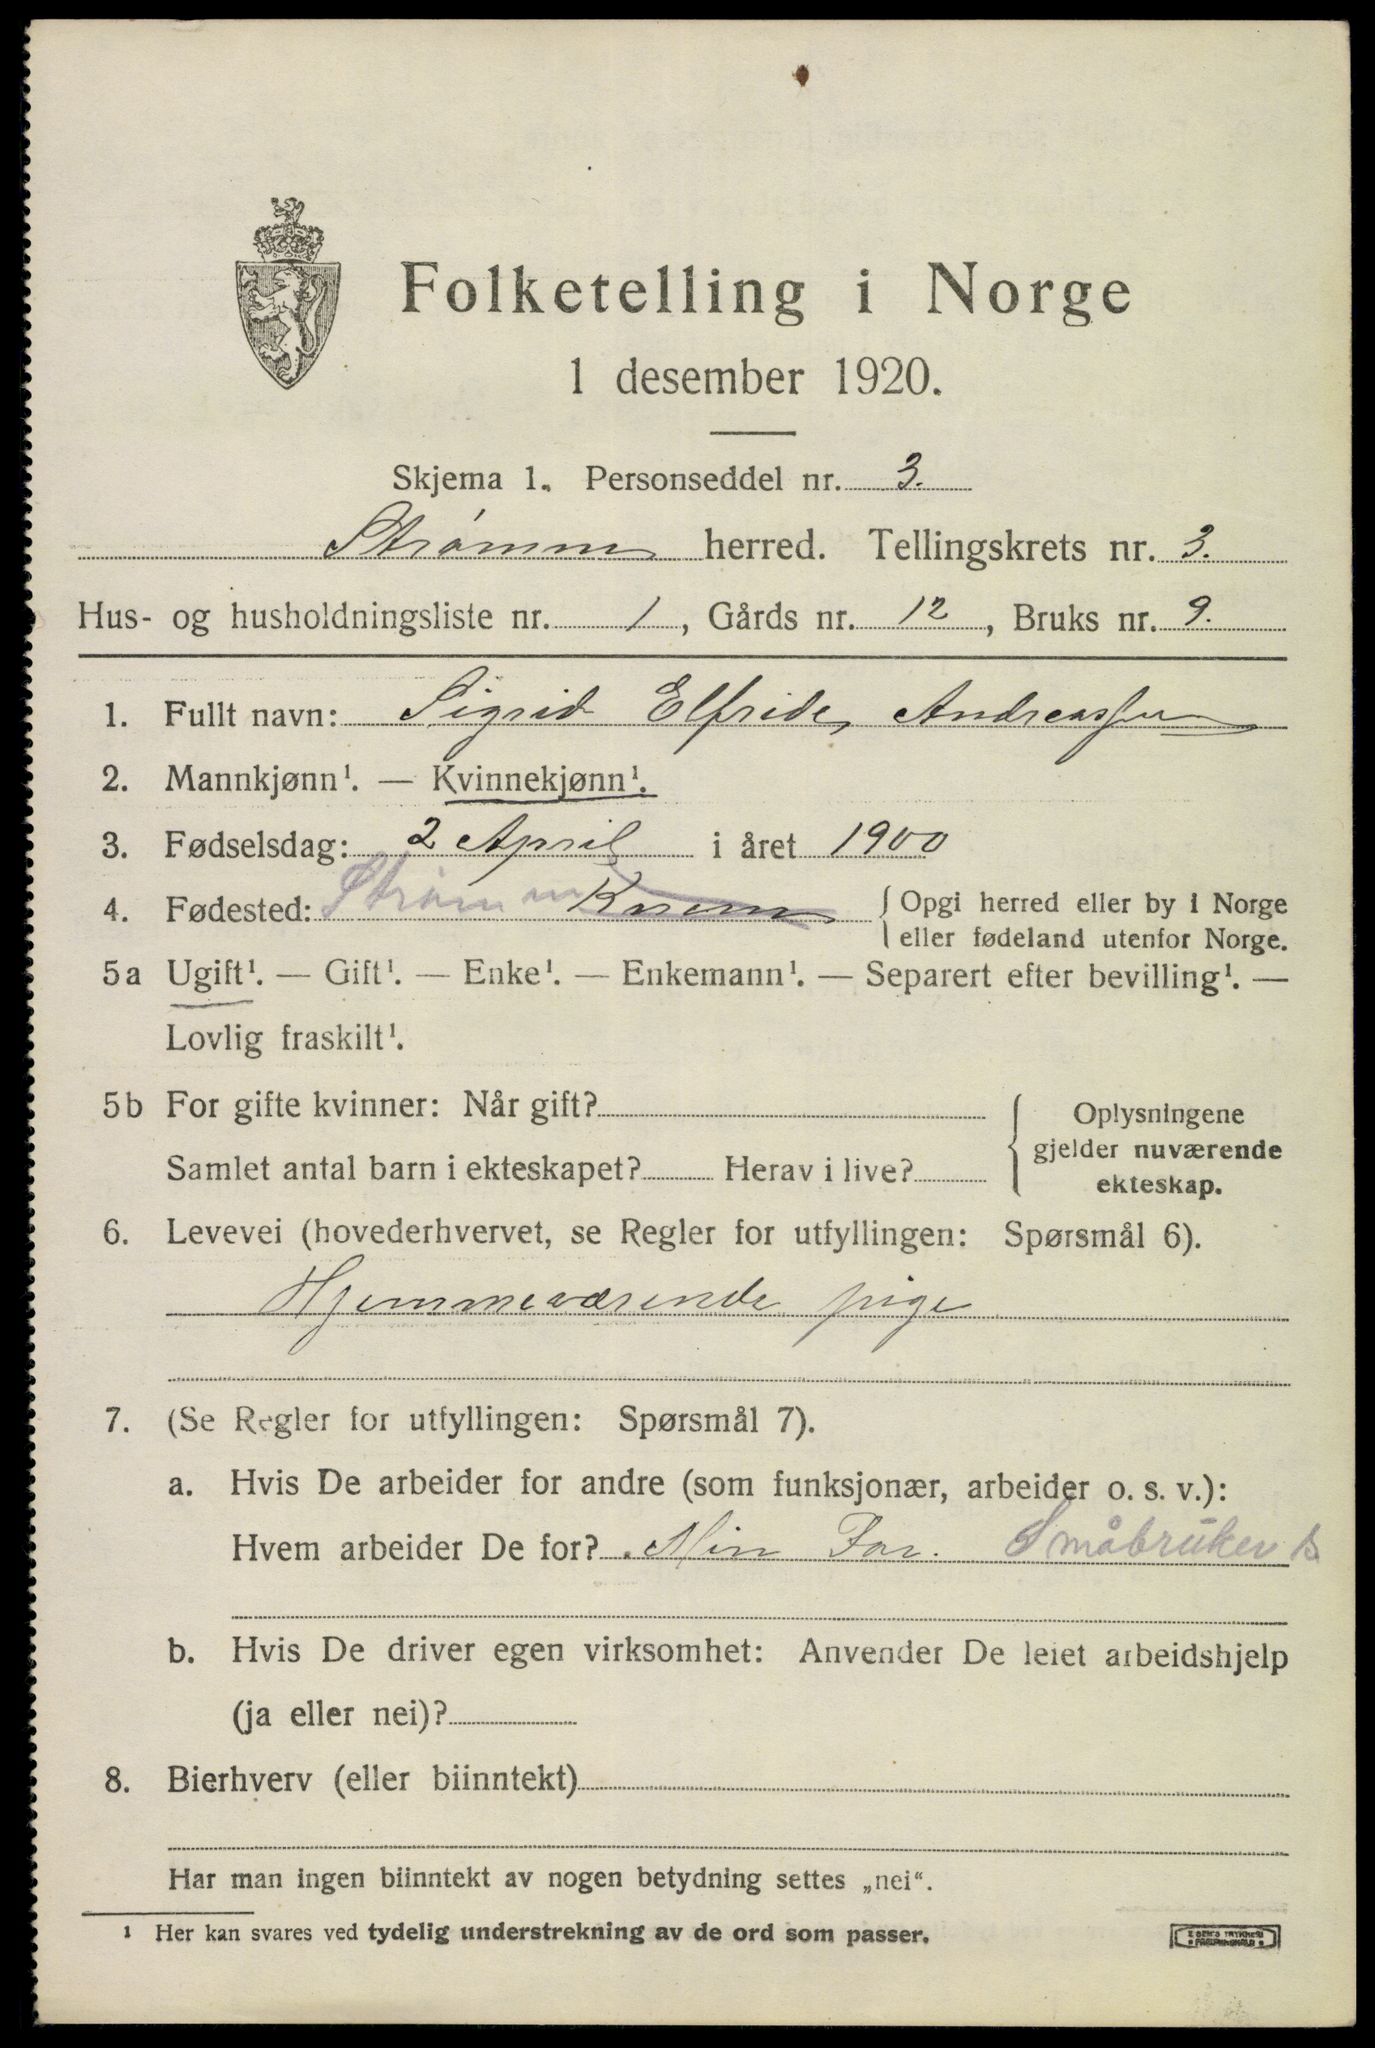 Folketelling i Norge
1 desember 1920.
Skjema 1. Personseddel nr. 3.
Strømm herred. Tellingskrets nr. 3.
Hus- og husholdningsliste nr. 1, Gårds nr. 12, Bruks nr. 9.
1. Fullt navn: Sigrid Elfride Andreassen
2. Mannkjønn¹. — Kvinnekjønn¹.
3. Fødselsdag: 2 April i året 1900
4. Fødested: Strømm { Opgi herred eller by i Norge
eller fødeland utenfor Norge.
5a Ugift¹. — Gift¹. — Enke¹. — Enkemann¹. — Separert efter bevilling¹. —
Lovlig fraskilt¹.
5b For gifte kvinner: Når gift?
Samlet antal barn i ekteskapet? Herav i live?
{ Oplysningene
gjelder nuværende
ekteskap.
6. Levevei (hovederhvervet, se Regler for utfyllingen: Spørsmål 6).
Hjemmeværende pige
7. (Se Regler for utfyllingen: Spørsmål 7).
a. Hvis De arbeider for andre (som funksjonær, arbeider o. s. v.):
Hvem arbeider De for? Min Far. Småbruker
b. Hvis De driver egen virksomhet: Anvender De leiet arbeidshjelp
(ja eller nei)?
8. Bierhverv (eller biinntekt)
Har man ingen biinntekt av nogen betydning settes „nei“.
¹ Her kan svares ved tydelig understrekning av de ord som passer.